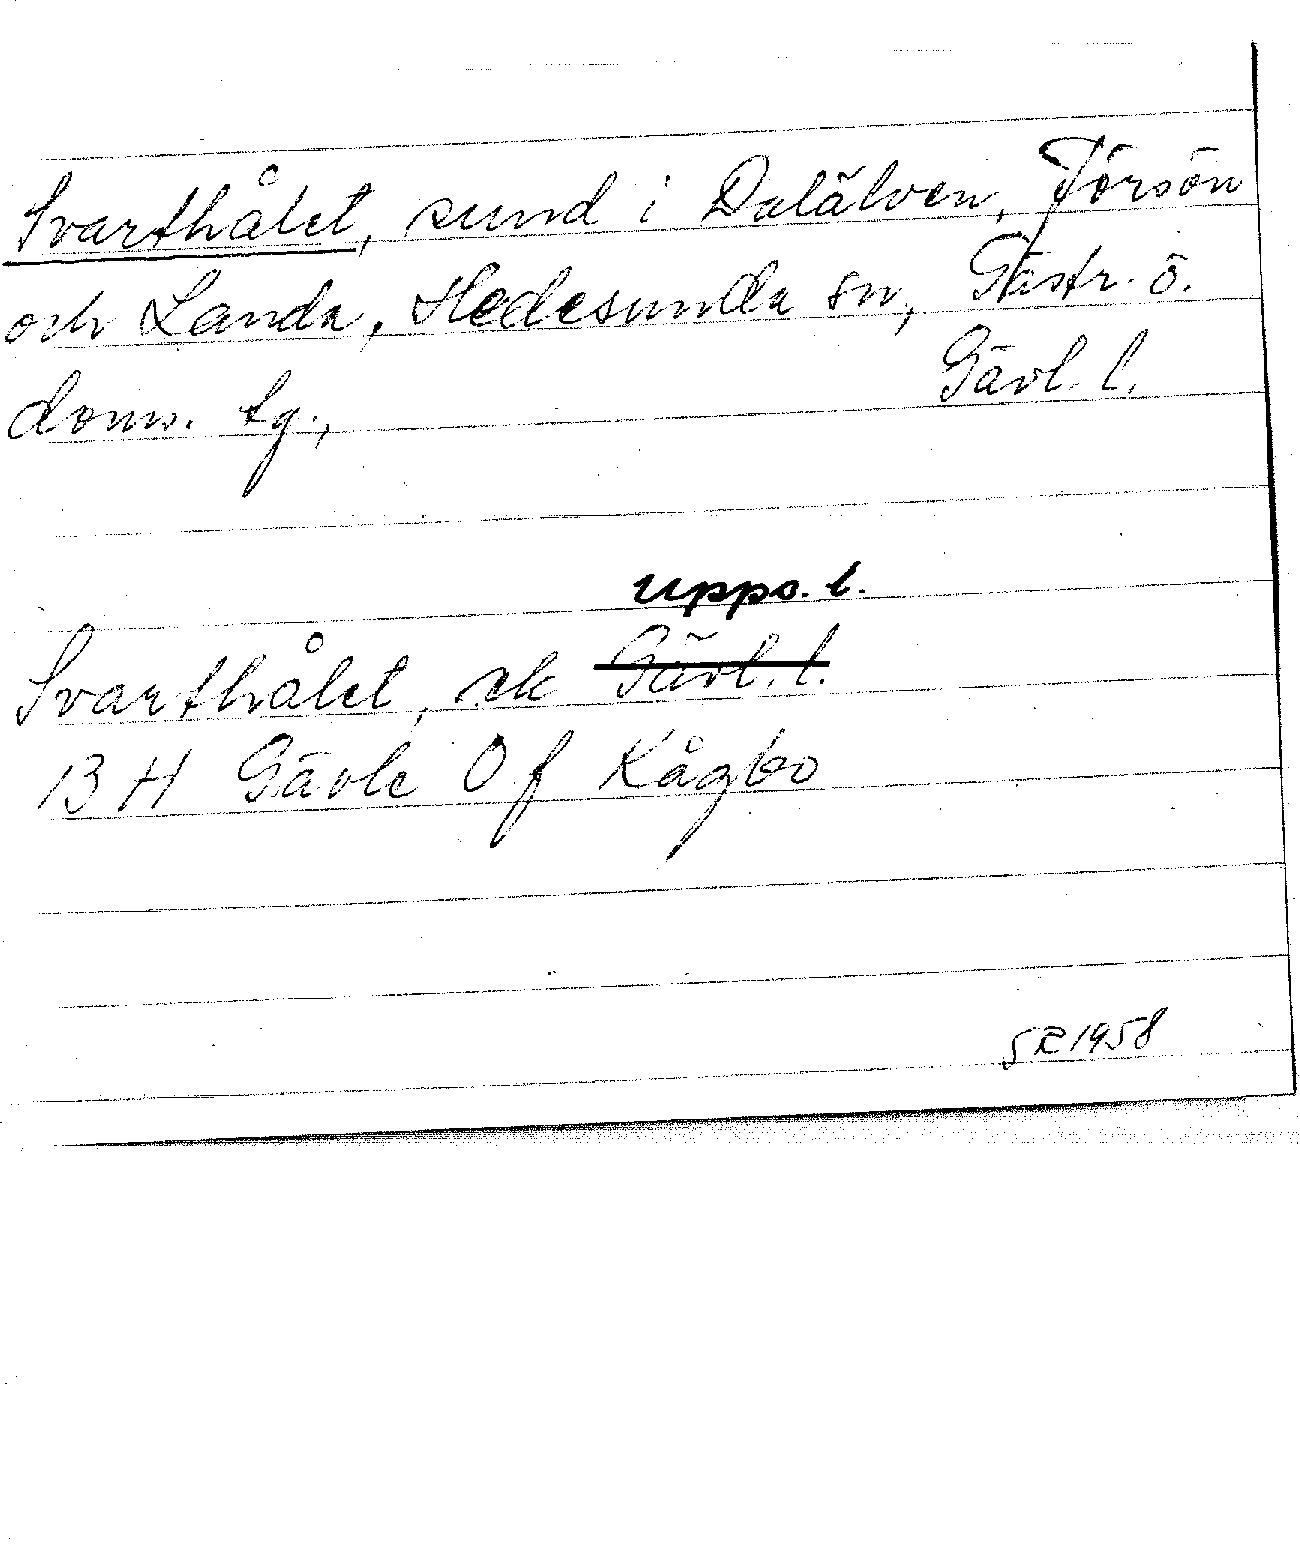 Svarthålet, sund i Dalälven, Jörsön
och Landa, Hedesunda sn, Gästr. ö.
doms. tg., Gävl. l.
Upps. l.
Svarthålet, ek Gävl. l.
13 H Gävle 0 f Kågbo
SR 1958